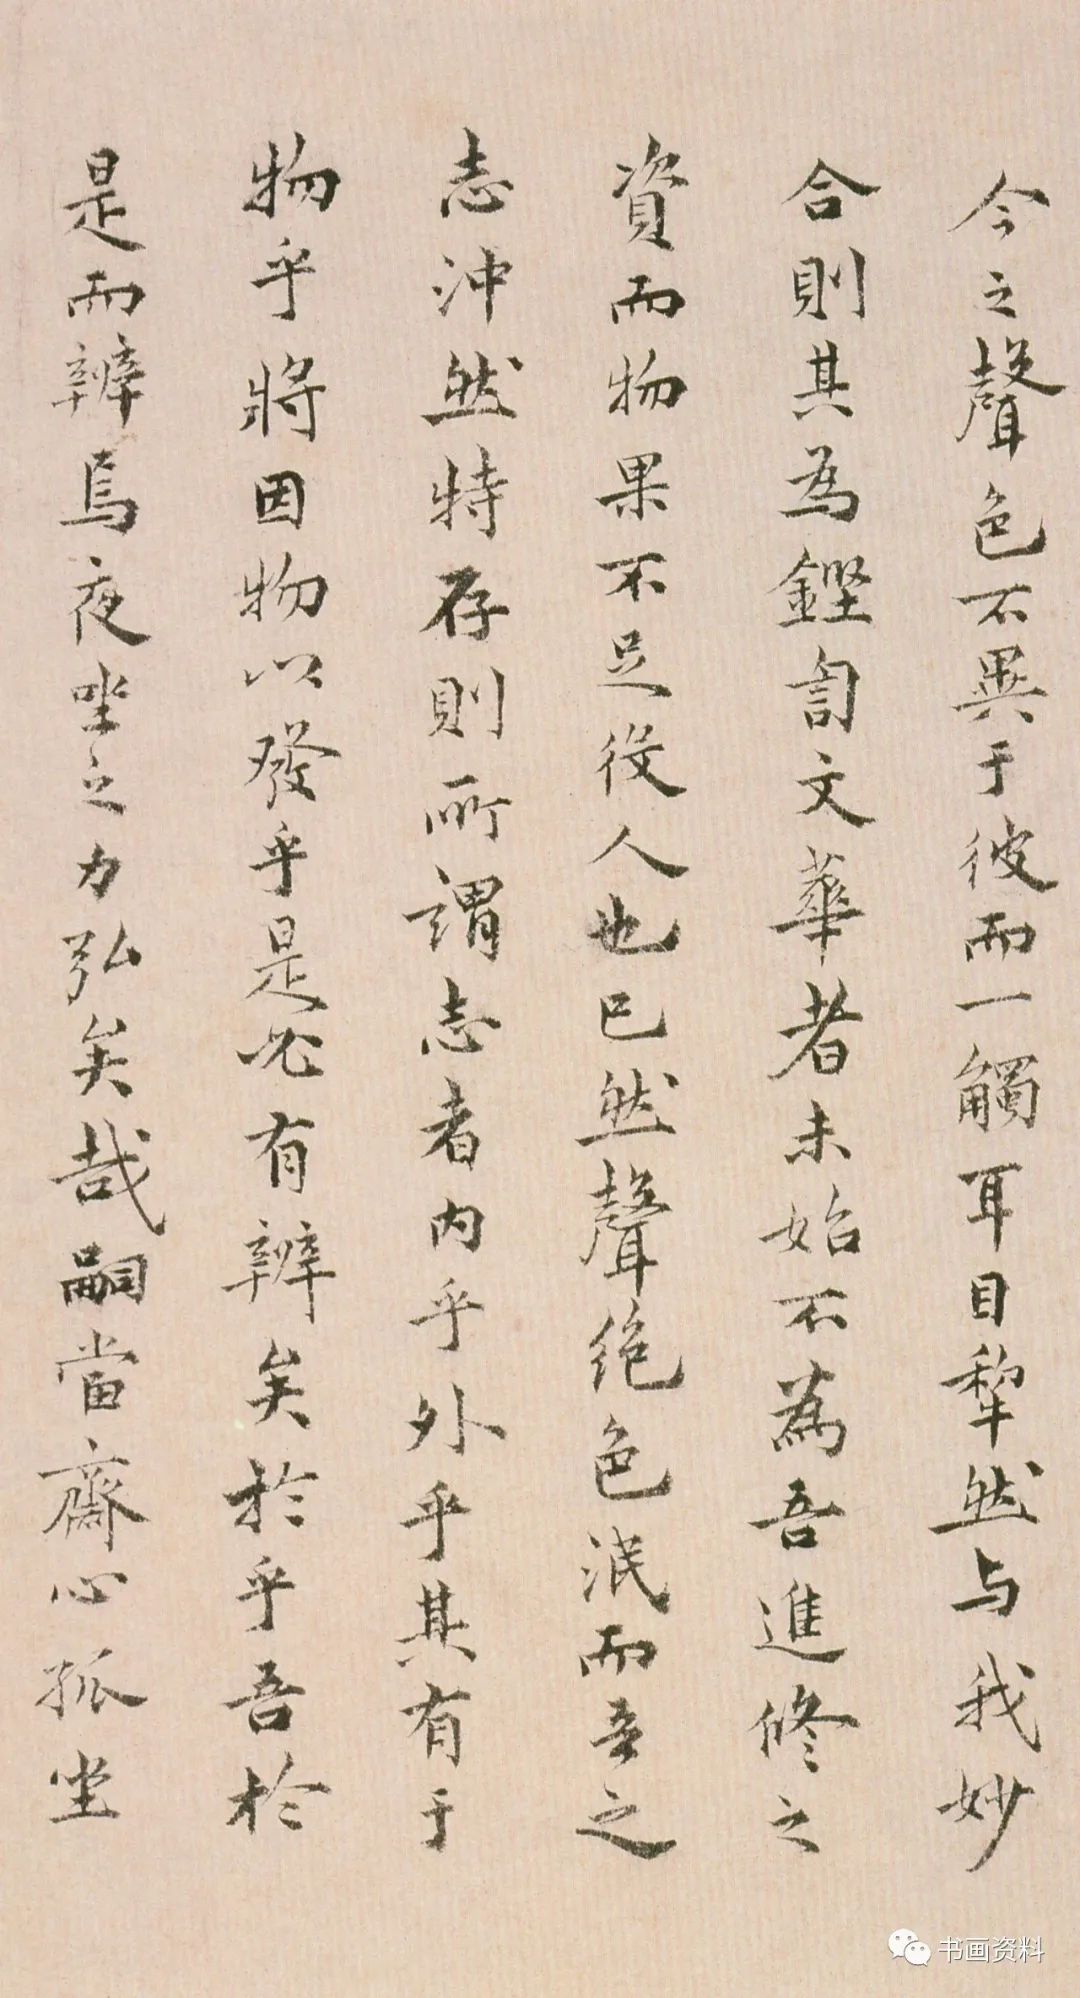 今之聲色不異于彼而一觸耳目犂然与我妙
合則其為鏗訇文華者未始不為吾進修之
資而物果不足役人也已然聲绝色泯而吾之
志冲然特存則所謂志者内乎外乎其有于
物乎將因物以發乎是必有辨矣於乎吾於
是而辨焉夜坐之力弘矣哉嗣當齋心孤坐
书画资料